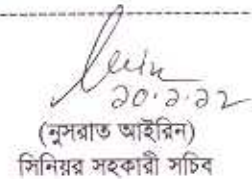 ২০.২.২২
(নুসরাত আইরিন)
সিনিয়র সহকারী সচিব